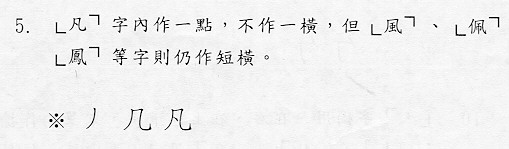 5. 「凡」字內作一點，不作一橫，但「風」、「佩」
「鳳」等字則仍作短橫。
※ 丿 几 凡